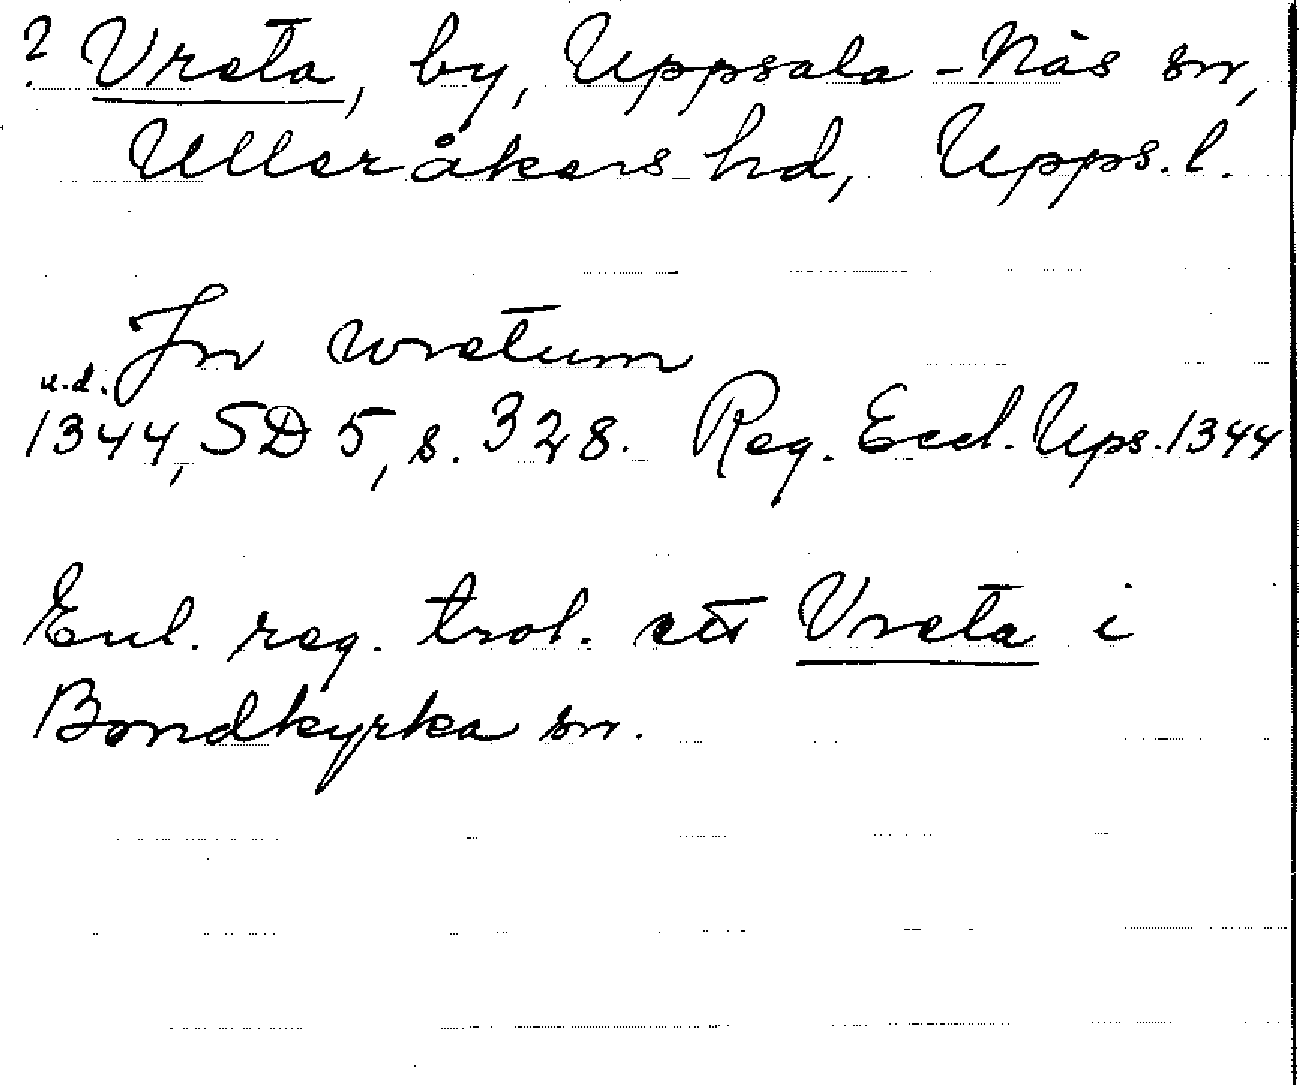 ? Vreta, by, Uppsala-Näs sn,
Ulleråkers hd, Upps. l.
Jn wretum
u.d.
1344, SD 5, s. 328. Reg. Eccl. Ups. 1344
Enl. reg. trol. ett Vreta i
Bondkyrka sn.